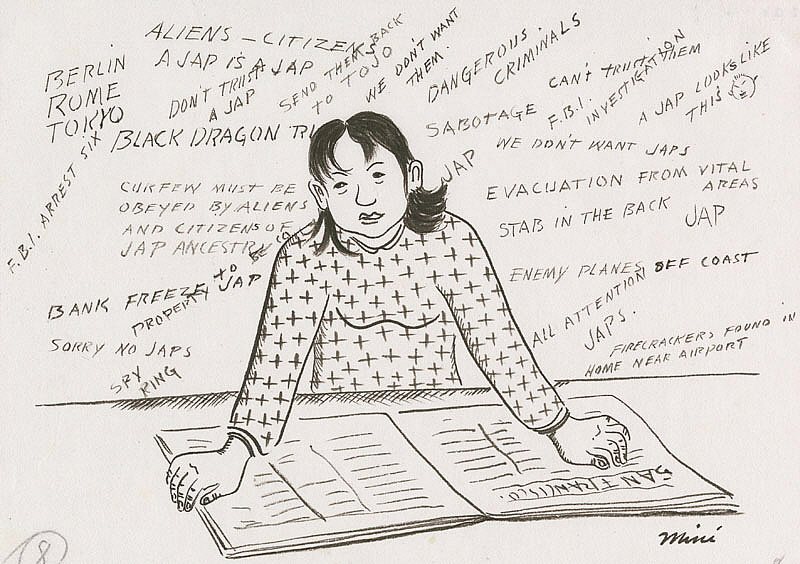 ALIENS — CITIZENS
A JAP IS A JAP
BERLIN
ROME
TOKYO
DON'T TRUST
A JAP
SEND THEM BACK
TO TOJO
WE DON'T WANT
THEM.
DANGEROUS
CRIMINALS
CAN'T TRUST THEM
F.B.I.
INVESTIGATION
A JAP LOOKS LIKE
THIS
F.B.I. ARREST SIX
BLACK DRAGON
SABOTAGE
JAP
WE DON'T WANT JAPS
CURFEW MUST BE
OBEYED BY ALIENS
AND CITIZENS OF
JAP ANCESTRY
EVACUATION FROM VITAL
AREAS
STAB IN THE BACK
JAP
BANK FREEZE JAP
PROPERTY TO BE
SORRY NO JAPS
SPY
RING
ENEMY PLANES OFF COAST
ALL ATTENTION
JAPS.
FIRECRACKERS FOUND IN
HOME NEAR AIRPORT
SAN FRANCISCO.
Miné
8